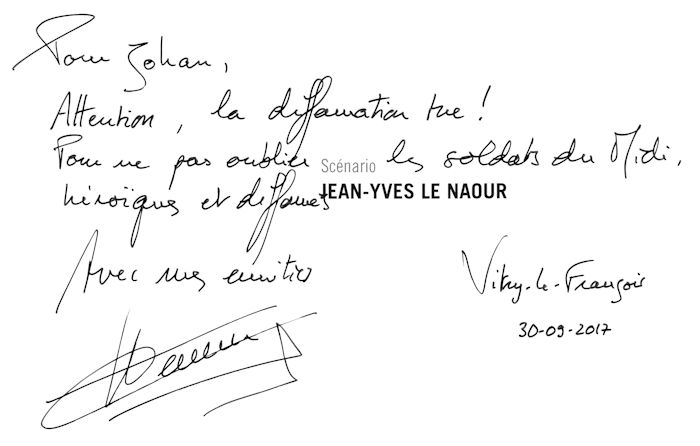 Pour Johan,
Attention, la diffamation tue !
Pour ne pas oublier les soldats du Midi,
Scénario
héroïques et diffamés
JEAN-YVES LE NAOUR
Avec mes amitiés
Vitry-le-François
30-09-2017